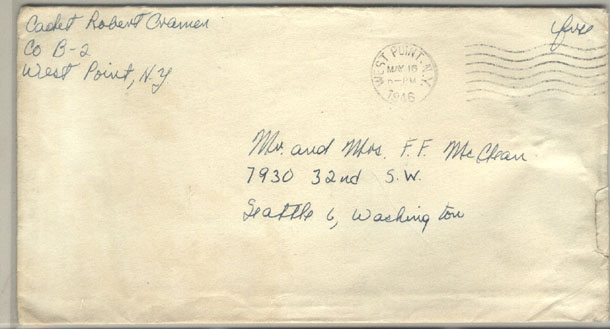 Cadet Robert Cramer
Co B-2
West Point, N.Y
free
WEST POINT, N.Y.
MAY 16
PM
1946
Mr. and Mrs. F.F. McClean
7930 32nd S.W.
Seattle 6, Washington